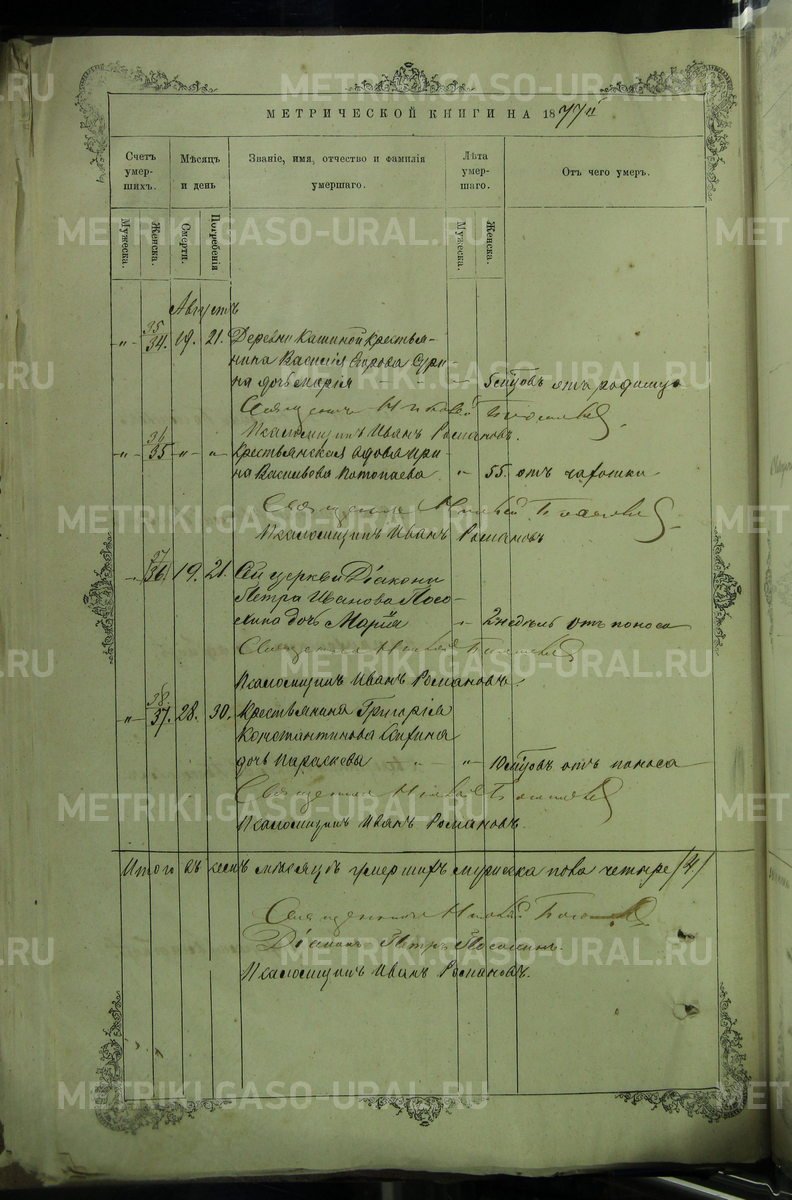 METRIKI.GASO-URAL.RU
МЕТРИЧЕСКОЙ КНИГИ НА 1877 г
Счетъ умер-шихъ.
Мѣсяцъ и день
Званіе, имя, отчество и фамилія умершаго.
Лѣта умер-шаго.
Отъ чего умеръ.
Мужеска.
Женска.
Смерти.
Погребенія
Мужеска.
Женска.
Августъ
35
34. 19. 21. Деревни Кашиной крестья-
нина Василія Егорова
дочь Марія 5 отъ родимцу
Священникъ Николай
Псаломщикъ Иванъ Романовъ.
36
35 " " Крестьянская вдова Ири-
на Васильева " 55. отъ чахотки
Священникъ Николай
Псаломщикъ Иванъ Романовъ
37
36. 19. 21. Сей церкви Діакона
Петра Иванова Посо-
лина дочь Марія " 2 недѣль отъ поноса
Священникъ Николай
Псаломщикъ Иванъ Романовъ.
38
" 37. 28. 30. Крестьянина Григорія
Константинова
дочь Параскева " " 10 отъ поноса
Священникъ Николай
Псаломщикъ Иванъ Романовъ.
Итого въ семъ мѣсяцѣ умершихъ пола четыре /4/
Священникъ Николай
Діаконъ Петръ Посолинъ.
Псаломщикъ Иванъ Романовъ.